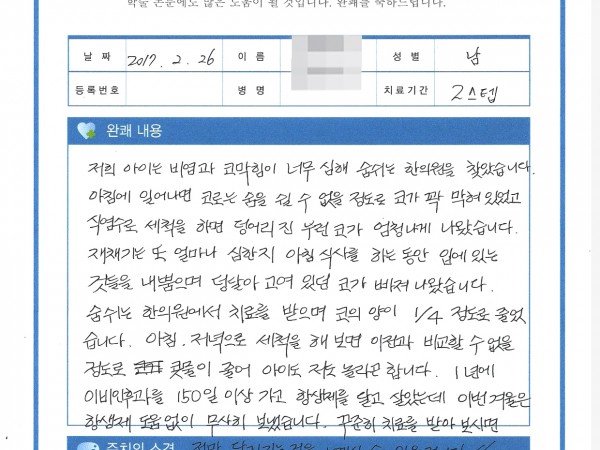 학술 논문에도 많은 도움이 될 것입니다. 완쾌를 축하드립니다.
날 짜 2017. 2. 26 이 름 성 별 남
등록번호 병 명 치료기간 2스텝
완쾌 내용
저희 아이는 비염과 코막힘이 너무 심해 숨쉬는 한의원을 찾았습니다.
아침에 일어나면 코로는 숨을 쉴 수 없을 정도로 코가 꽉 막혀 있었고
식염수로 세척을 하면 덩어리진 누런 코가 엄청나게 나왔습니다.
재채기는 또 얼마나 심한지 아침 식사를 하는 동안 입에 있는
것들을 내뿜으며 덩달아 고여 있던 코가 빠져 나왔습니다.
숨쉬는 한의원에서 치료를 받으며 코의 양이 1/4 정도로 줄었
습니다. 아침. 저녁으로 세척을 해 보면 이전과 비교할 수 없을
정도로 콧물이 줄어 아이도 저도 놀라곤 합니다. 1년에
이비인후과를 150일 이상 가고 항생제를 달고 살았는데 이번 겨울은
항생제 도움 없이 무사히 보냈습니다. 꾸준히 치료를 받아 보시면
주치의 소견